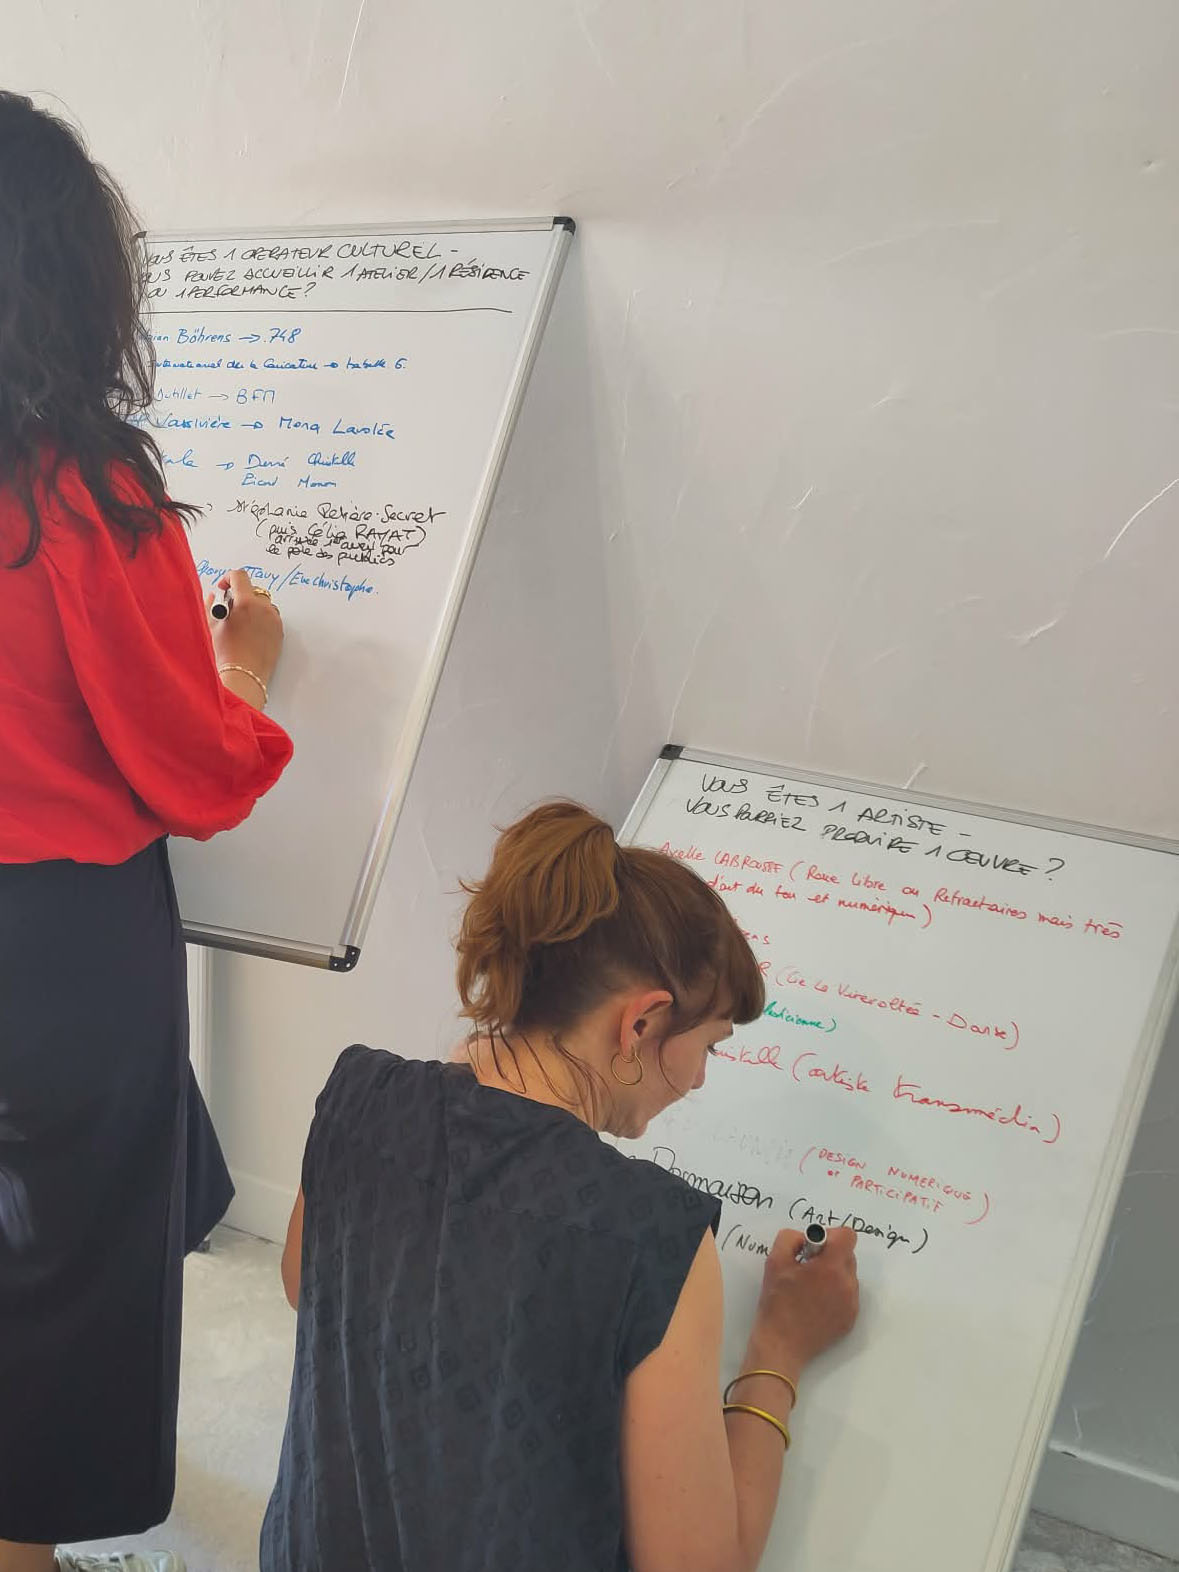 ÊTES 1 OPERATEUR CULTUREL -
POUVEZ ACCUEILLIR 1 ATELIER / 1 RÉSIDENCE
OU 1 PERFORMANCE ?
Böhrens → 748
International de la Caricature → Isabelle G.
Dutillet → BFM
Vassivière → Mona Lavolée
→ Denné Christelle
Picard Manon
→ Stéphanie Retière-Secret
(puis Célia RAYAT)
arrivée 1er avril pour
le pôle des publics
Tavy / Eve Christophe.
VOUS ÊTES 1 ARTISTE -
VOUS POURRIEZ PRODUIRE 1 OEUVRE ?
Axelle LABROUSSE (Roue Libre ou Réfractaires mais très
d'art du feu et numérique)
R (Cie La Virevoltée - Danse)
(artiste transmédia)
(DESIGN NUMERIQUE
et PARTICIPATIF)
Dormaison (Art/Design)
(Num